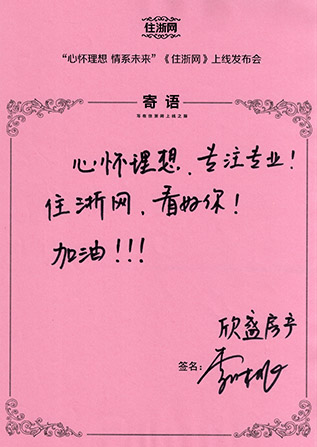 住浙网
“心怀理想 情系未来”《住浙网》上线发布会
寄语
心怀理想、专注专业!
住浙网,看好你!
加油!!!
欣盛房产
签名: